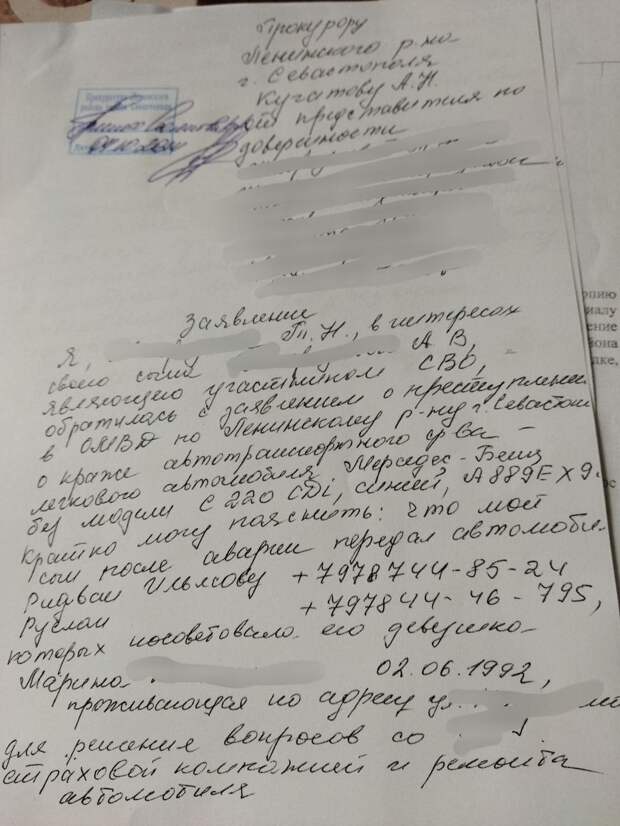 Прокурору
Ленинского р-на
г. Севастополя
Кугатову А.Н.
от представителя по
доверенности
04.10.2024
Заявление
Я, Т.Н., в интересах
своего сына А В,
являющего участником СВО,
обратилась с заявлением о преступлении
в ОМВД по Ленинскому р-ну г. Севастоп
о краже автотранспортного ср-ва –
легкового автомобиля Мерседес-Бенц
без модели С 220 CDi, синий, А889ЕХ9
Кратко могу пояснить: что мой
сын после аварии передал автомобиль
Ридван Ильясову +7978744-85-24
Руслан +797844-46-795,
которых посоветовала его девушка
Марина 02.06.1992,
проживающая по адресу ул.
для решения вопросов со
страховой компанией и ремонта
автомобиля
опию
иалу
ение
йона
дке,